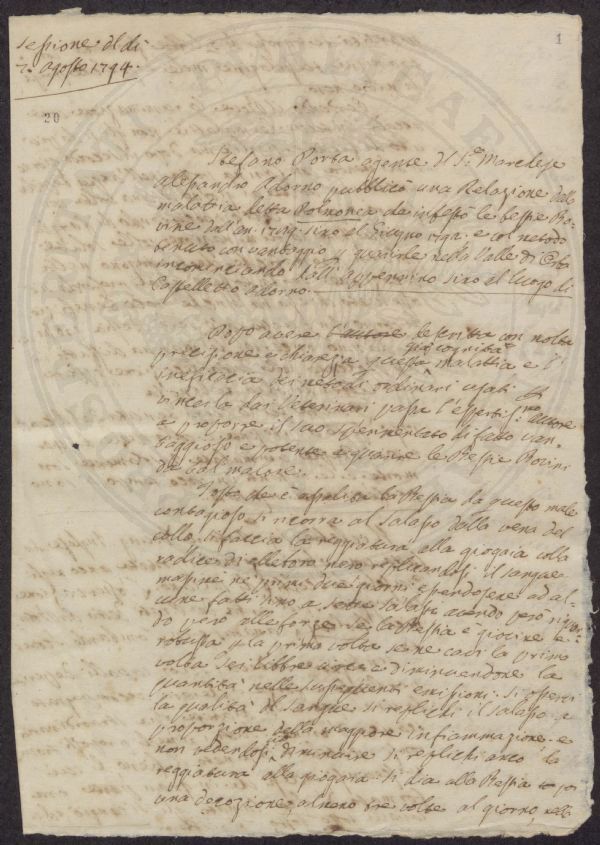 Sessione del dì
7. Agosto 1794.
1
20
Stefano Porta agente del Sr. Marchese
Alessandro Adorno pubblicò una Relazione della
malatia detta Polmonea da infestò le bestie Bo-
vine dall'an. 1793. sino al Giugno 1794. e col metodo
tenuto con vantaggio p. guarirle nella Valle di
incominciando dall'Appennino sino al luogo di
Castelletto Adorno.
Dopo avere l'autore descritta con molta
precisione e chiarezza questa già cognita malattia e l'
inefficacia dei metodi ordinari usati p.
vincerla dai Veterinari passa l'espertissimo autore
a proporre il suo sperimentato di fatto van-
taggioso e potente a guarire le Bestie Bovini
da tal malore.
Tosto che è assalita la Bestia da questo male
contagioso si ricorra al salasso dalla vena del
collo, si faccia la reggiatura alla giogaia colla
radice di elleboro nero replicandosi il sangue
massime ne primi due giorni essendosene ad al-
cune fatti sino a sette salassi avendo però
do però alle forze se la Bestia è giovine e
robusta p. la prima volta se ne cavi la prima
volta sei libbre circa e diminuendone la
quantità nelle susseguenti emissioni. Si osservi
la qualità del sangue si replichi il salasso a
proporzione della maggiore infiammazione. e
non vedendosi diminuire si replichi anco la
reggiatura alla giogaia. Si dia alla Bestia
una decozione almeno tre volte al giorno, nella